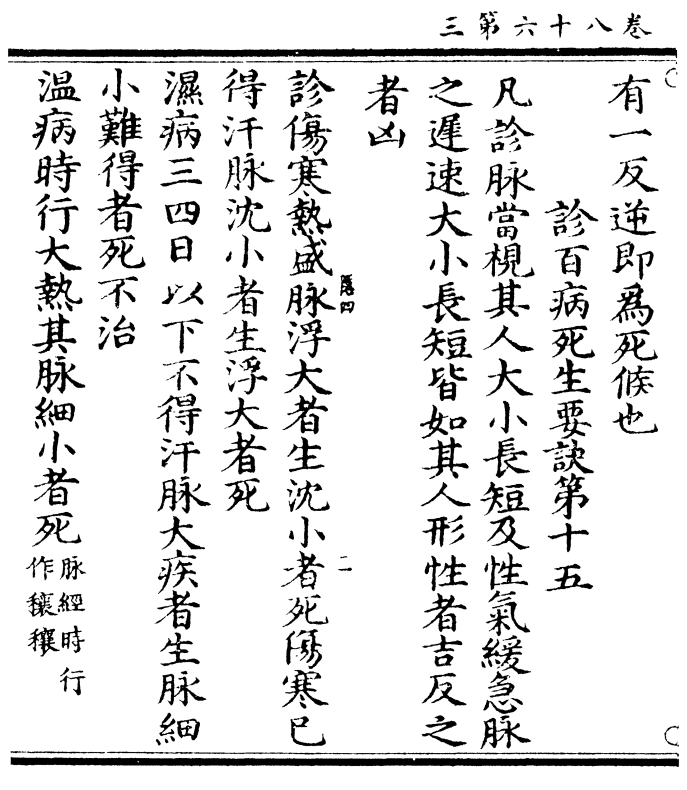 卷八十六第三
有一反逆即爲死候也
診百病死生要訣第十五
凡診脉當視其人大小長短及性氣緩急脉
之遲速大小長短皆如其人形性者吉反之
者凶
診傷寒熱盛脉浮大者生沈小者死傷寒已
得汗脉沈小者生浮大者死
濕病三四日以下不得汗脉大疾者生脉細
小難得者死不治
温病時行大熱其脉細小者死
脉經時行
作穰穰
二